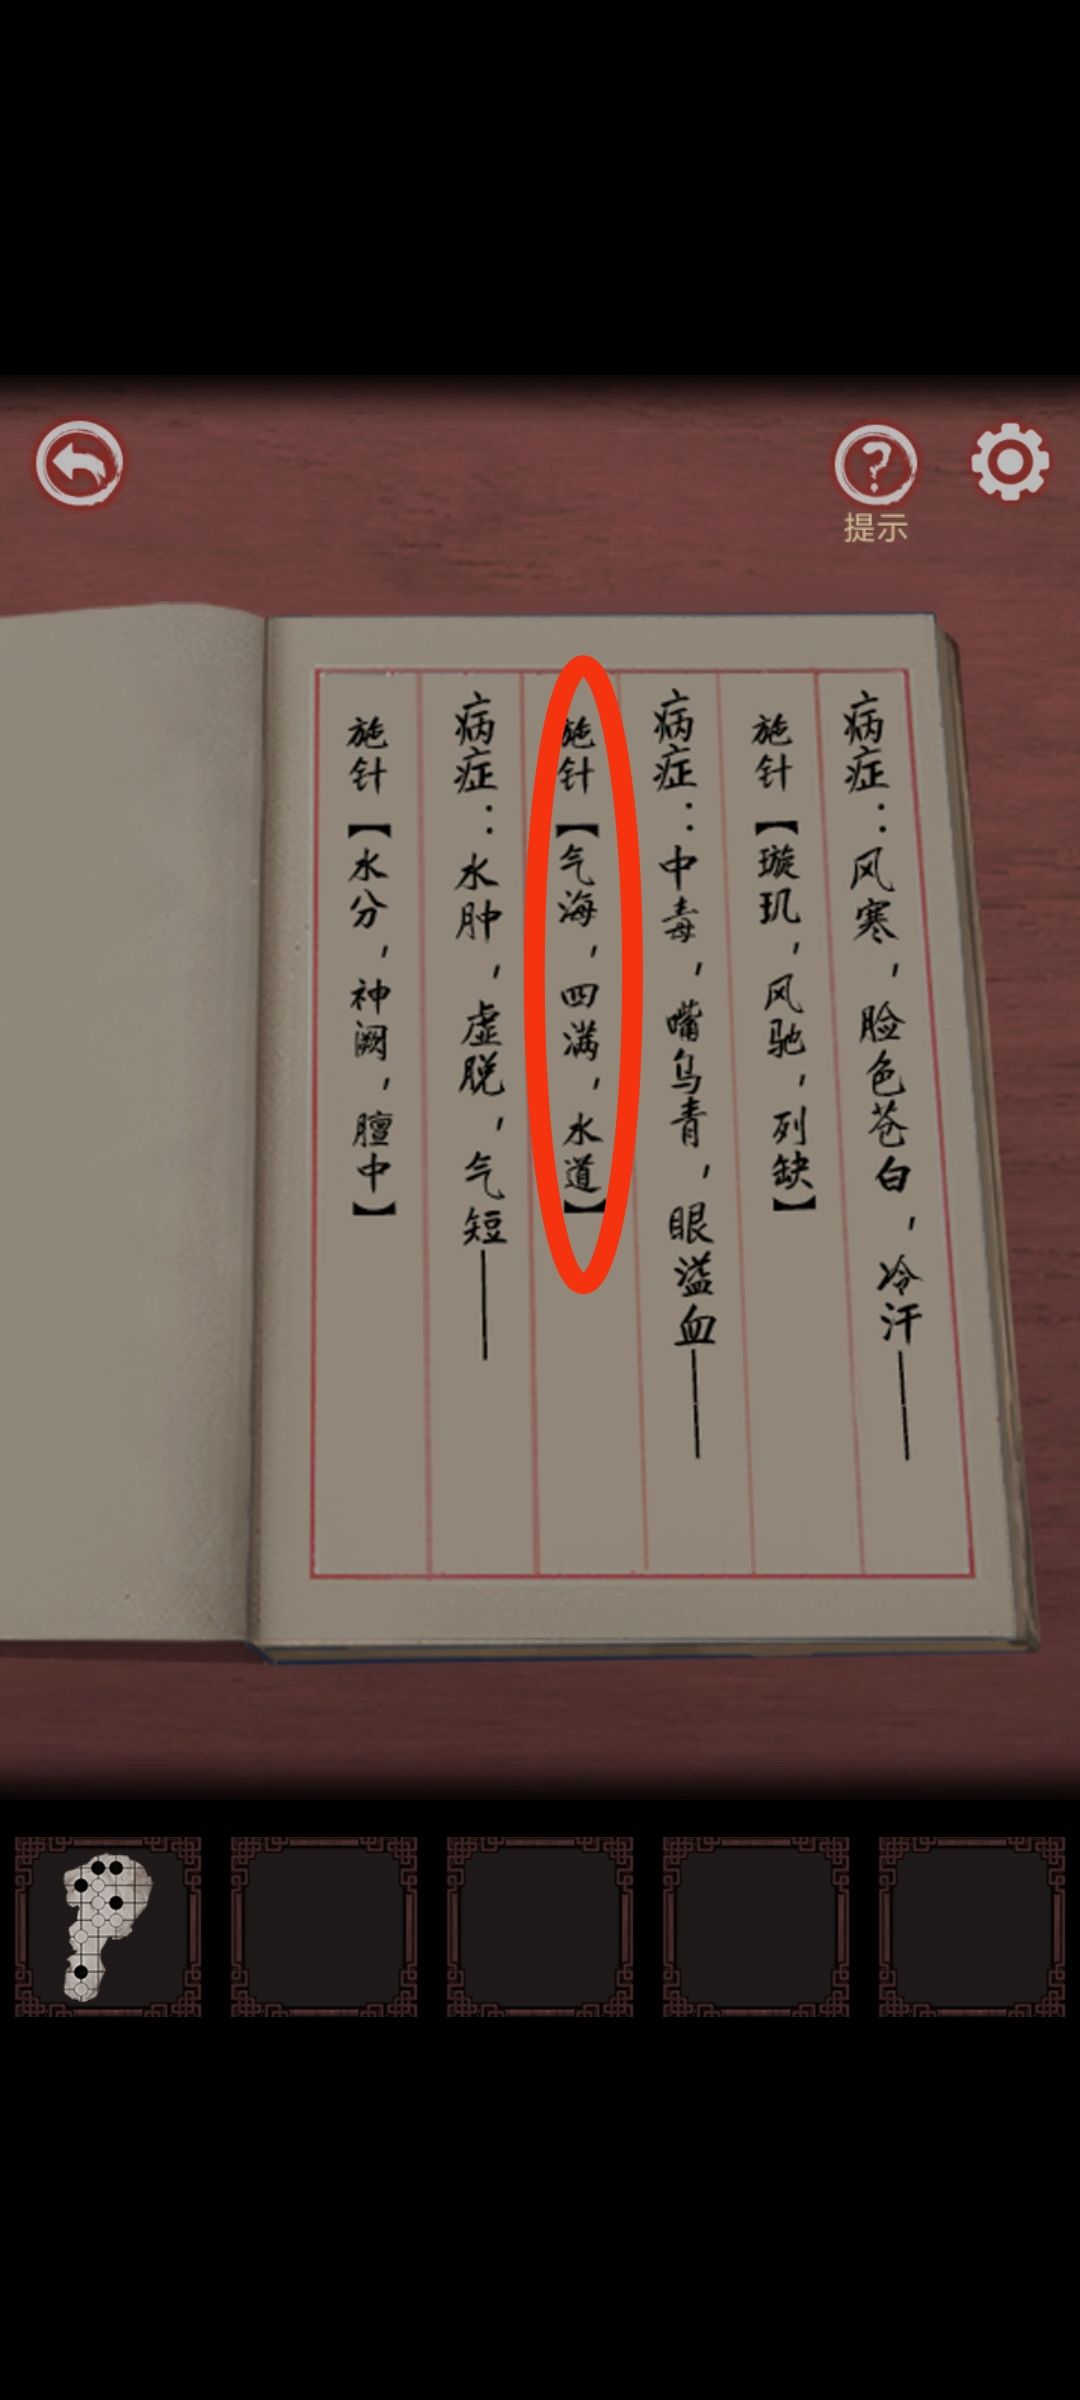 提示
病症：风寒，脸色苍白，冷汗——
施针【璇玑，风驰，列缺】
病症：中毒，嘴乌青，眼溢血——
施针【气海，四满，水道】
病症：水肿，虚脱，气短——
施针【水分，神阙，膻中】